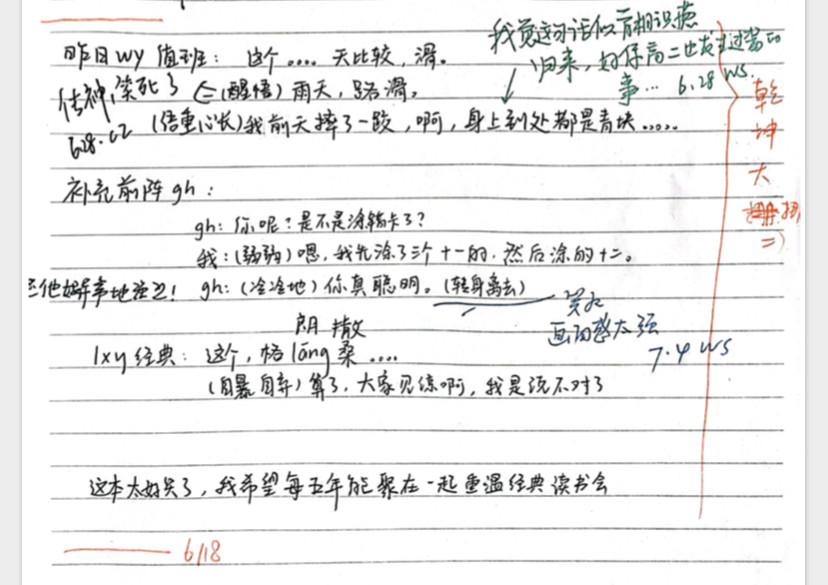 昨日wy值班：这个....天比较，滑。
我觉这句话似曾相识
归来，好像高二也发生过
事… 6.28 WS.
传神，笑死了
6.28.CZ
(醒悟)雨天，路滑。
(语重心长)我前天摔了一跤，啊，身上到处都是青块.....
乾坤大
二)
补充前阵gh：
gh：你呢？是不是涂错卡了？
我：(弱弱)嗯，我先涂了三个十一的，然后涂的十二。
gh：(冷冷地)你真聪明。(转身离去)
笑死
画面感太强
7.4 WS
朗 撒
lxy经典：这个，格lāng桑....
(自暴自弃)算了，大家见谅啊，我是说不对了
这本太好笑了，我希望每五年能聚在一起重温经典读书会
6/18